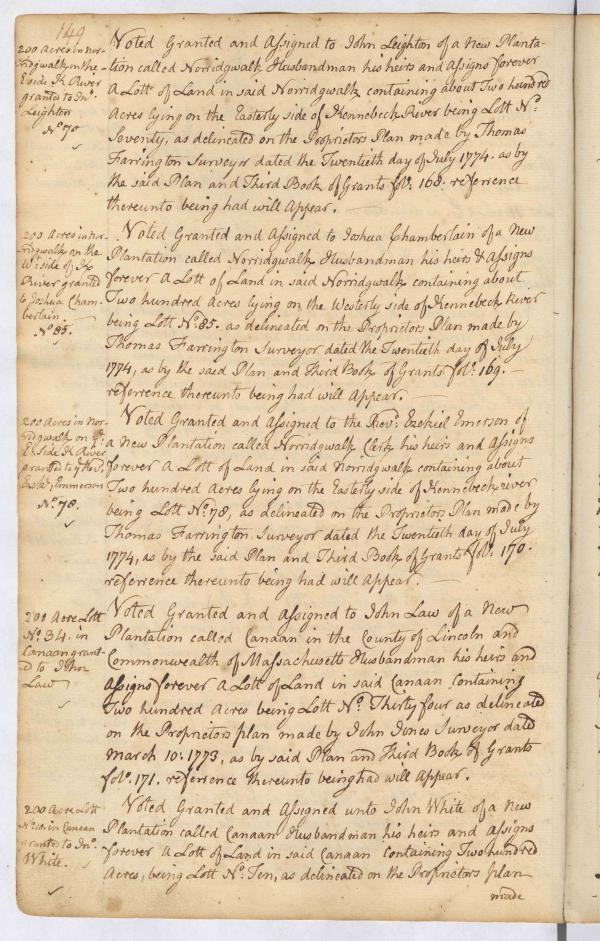 149
200 Acres in nor-
ridgwalk on the
E side K River
granted to Jnº.
Leighton
Nº 70
Voted Granted and Assigned to John Leighton of a New Planta-
-tion called Norridgwalk Husbandman his heirs and Assigns forever
A Lott of Land in said Norridgwalk containing about Two hundred
Acres lying on the Easterly side of Kennebeck River being Lott Nº.
Seventy, as delineated on the Proprietors Plan made by Thomas
Farrington Surveyor dated the Twentieth day of July 1774. as by
the said Plan and Third Book of Grants folº. 168. refference
thereunto being had will Appear.
200 Acres in nor-
ridgwalk on the
Wt. side of K
River granted
to Joshua Cham-
bertain.
Nº 85.
Voted Granted and Assigned to Joshua Chamberlain of a New
Plantation called Norridgwalk Husbandman his heirs & Assigns
forever A Lott of Land in said Norridgwalk containing about
Two hundred Acres lying on the Westerly side of Kennebeck River
being Lott Nº. 85. as delineated on the Proprietors Plan made by
Thomas Farrington Surveyor dated the Twentieth day of July
1774, as by the said Plan and Third Book of Grants folº. 169.
refference thereunto being had will Appear.
200 Acres in Nor-
ridgwalk on ye.
E. Side K River
granted to ye Revd.
Ezekl. Emmerson
Nº. 78.
Voted Granted and Assigned to the Revd. Ezekiel Emerson of
a New Plantation called Norridgwalk Clerk his heirs and Assigns
forever A Lott of Land in said Norridgwalk containing about
Two hundred Acres lying on the Easterly side of Kennebeck river
being Lott Nº. 78, as delineated on the Proprietors Plan made by
Thomas Farrington Surveyor dated the Twentieth day of July
1774, as by the said Plan and Third Book of Grants folº. 170.
refference thereunto being had will Appear.
200 Acre Lott
Nº. 34. in
Canaan grant-
-d to John
Law
Voted Granted and Assigned to John Law of a New
Plantation called Canaan in the County of Lincoln and
Commonwealth of Massachusetts Husbandman his heirs and
Assigns forever A Lott of Land in said Canaan Containing
Two hundred Acres being Lott Nº. Thirty four as delineated
on the Proprietors plan made by John Jones Surveyor dated
March 10. 1773, as by said Plan and Third Book of Grants
folº. 171. refference thereunto being had will Appear.
200 Acre Lott
Nº 10. in Canaan
granted to Jnº.
White.
Voted Granted and Assigned unto John White of a New
Plantation called Canaan Husbandman his heirs and assigns
forever A Lott of Land in said Canaan Containing Two hundred
Acres, being Lott Nº. Ten, as delineated on the Proprietors plan
made